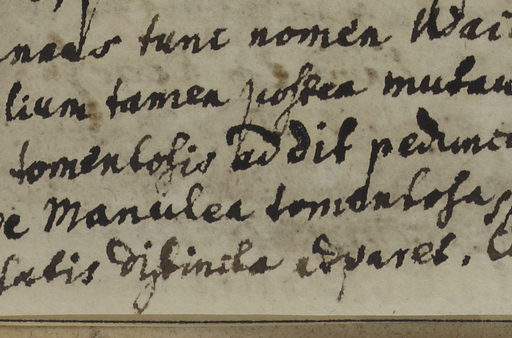 naeus tunc nomen Wa
lium tamen postea mutau
tomentosis addit pedunc
Manulea tomentosa,
satis distincta adparet.